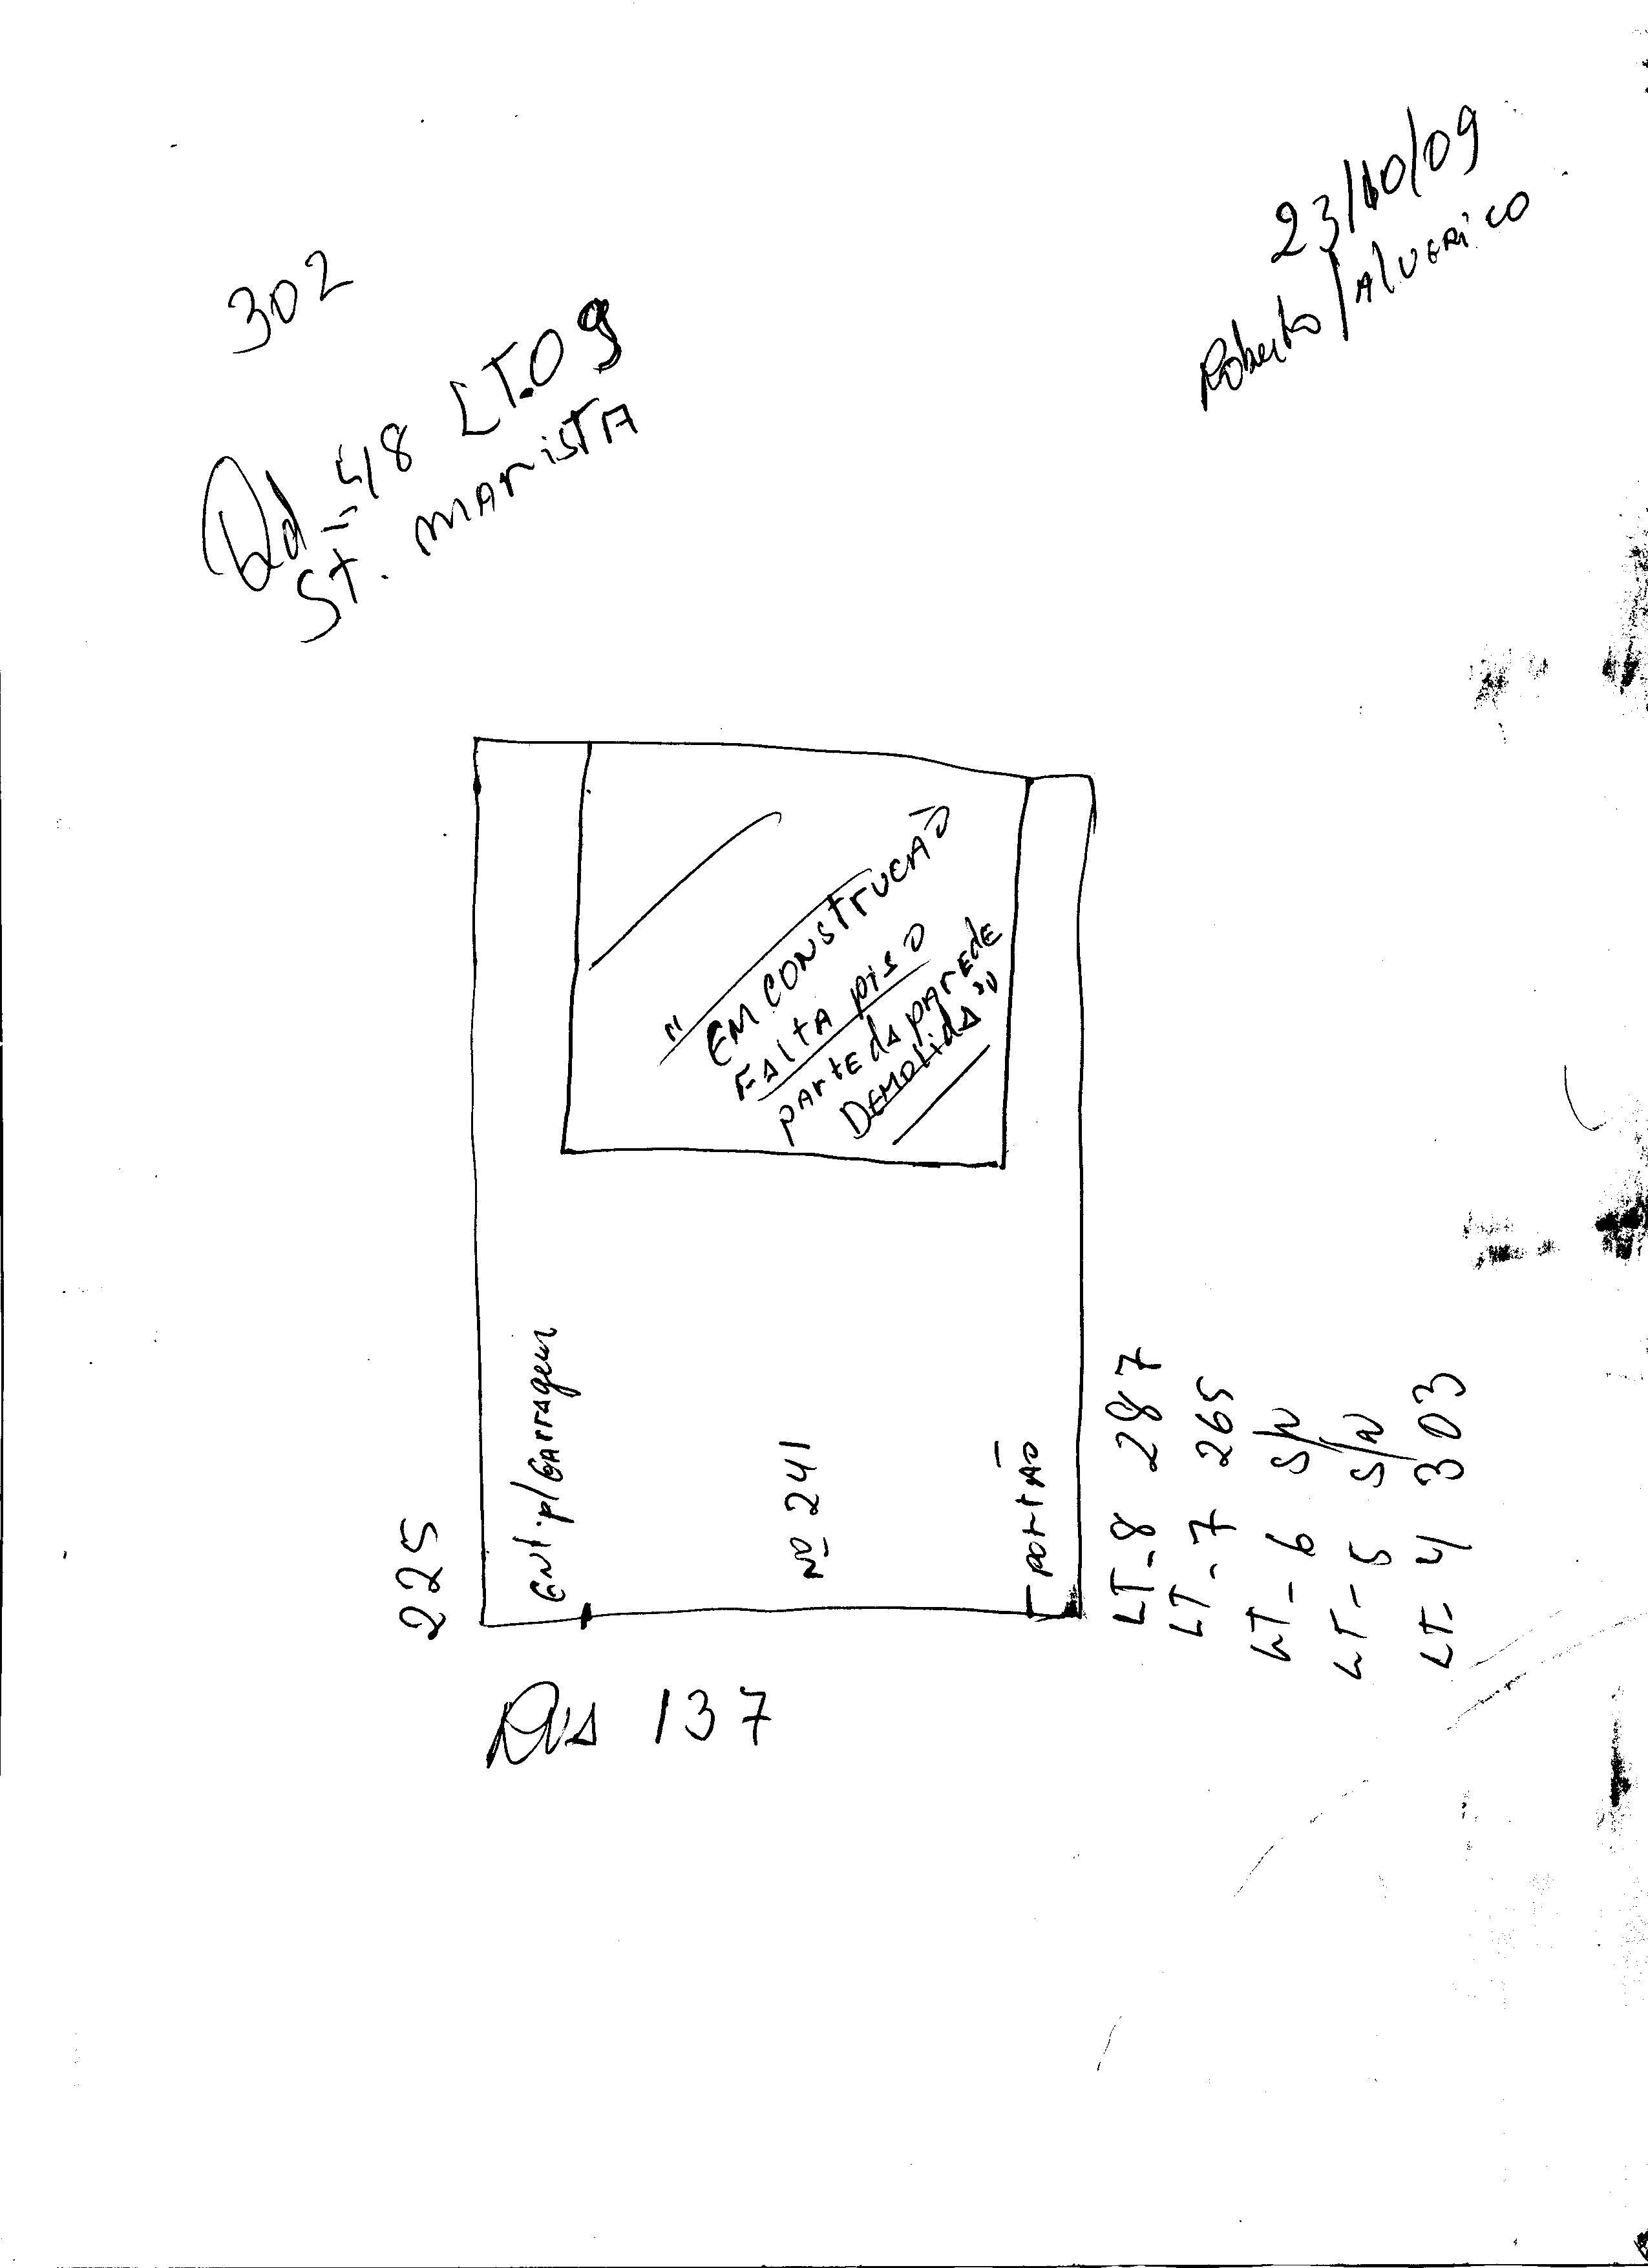 302
Qd=48 LT.09
St. MARISTA
23/10/09
Roberto/Alverico
"EM CONSTRUCÃO
FALTA PISO
PARTE dA PAREdE
DEMOLIdA"
Ent.p/GARRAgem
Nº 241
PORTÃO
225
RUA 137
LT-8 287
LT-7 265
LT-6 S/N
LT-5 S/N
LT-4 303